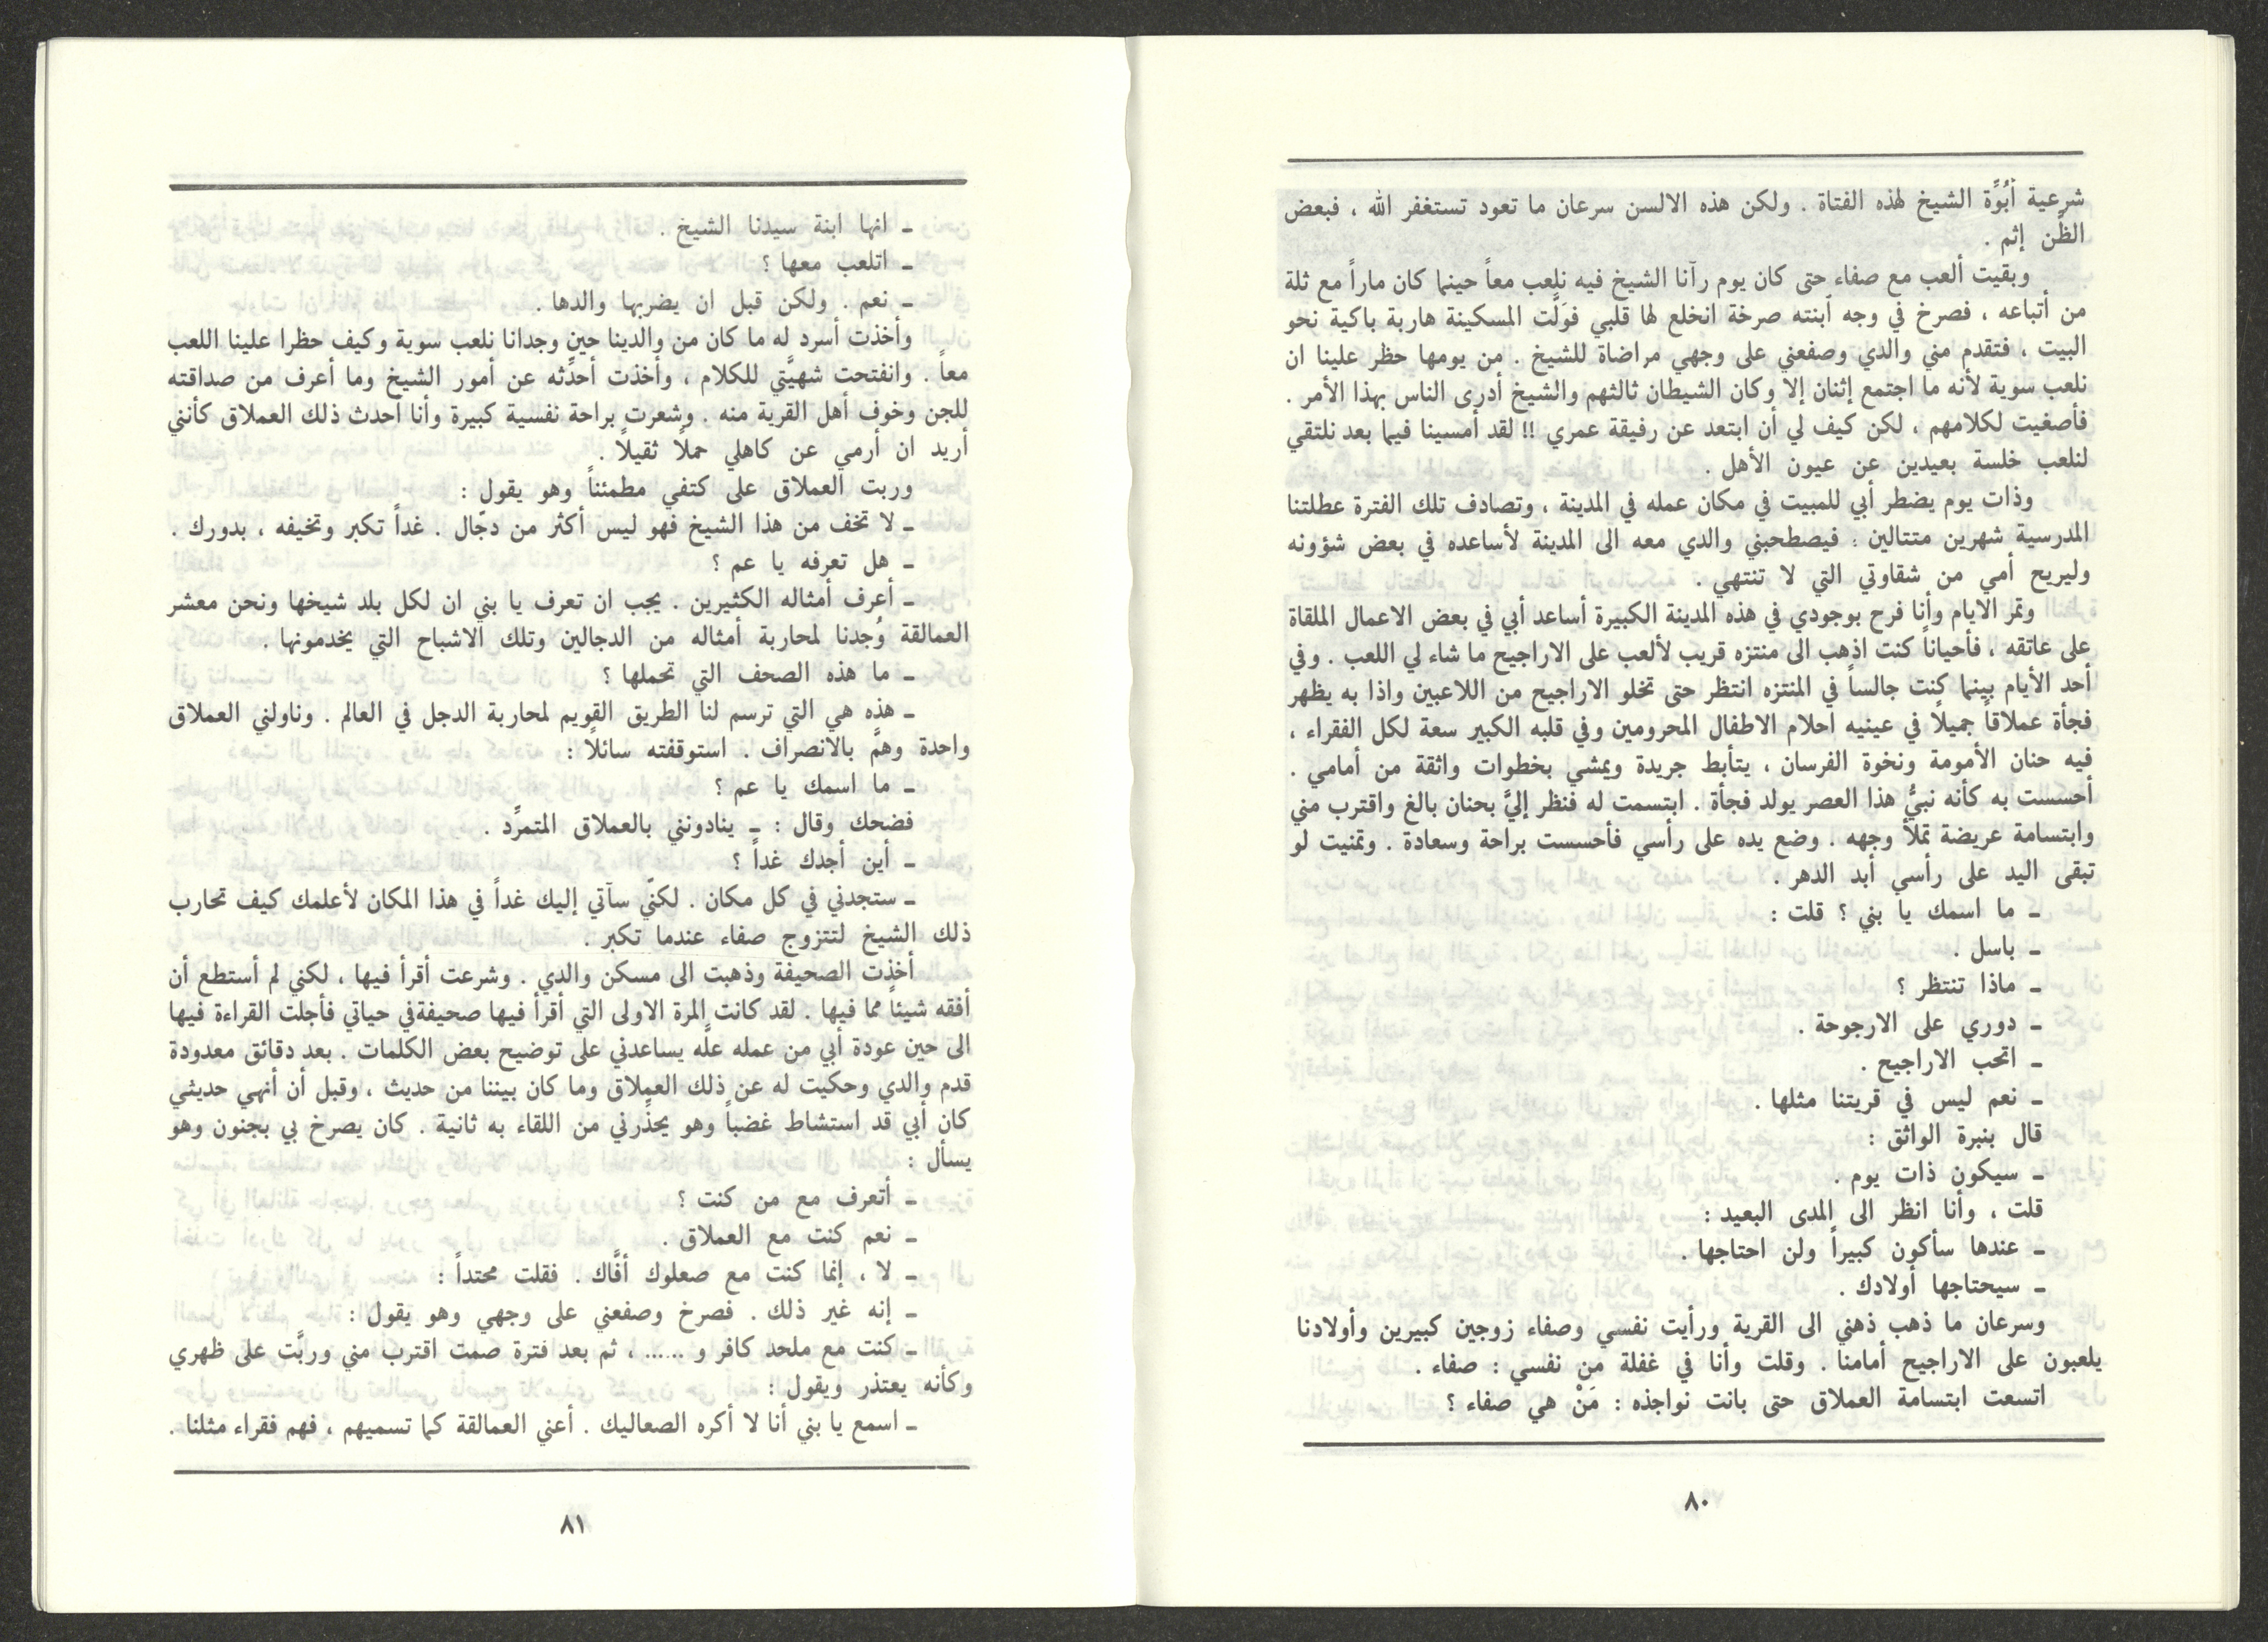 شرعية أبُوَّة الشيخ لهذه الفتاة . ولكن هذه الالسن سرعان ما تعود تستغفر الله ، فبعض
الظّن إثم .
وبقيت ألعب مع صفاء حتى كان يوم رآنا الشيخ فيه نلعب معاً حينما كان ماراً مع ثلة
من أتباعه ، فصرخ في وجه ابنته صرخة انخلع لها قلبي فوَلَّت المسكينة هاربة باكية نحو
البيت ، فتقدم مني والدي وصفعني على وجهي مراضاة للشيخ . من يومها حظر علينا ان
نلعب سوية لأنه ما اجتمع إثنان إلا وكان الشيطان ثالثهم والشيخ أدرى الناس بهذا الأمر .
فأصغيت لكلامهم ، لكن كيف لي أن ابتعد عن رفيقة عمري !! لقد أمسينا فيما بعد نلتقي
لنلعب خلسة بعيدين عن عيون الأهل .
وذات يوم يضطر أبي للمبيت في مكان عمله في المدينة ، وتصادف تلك الفترة عطلتنا
المدرسية شهرين متتالين : فيصطحبني والدي معه الى المدينة لأساعده في بعض شؤونه
وليريح أمي من شقاوتي التي لا تنتهي .
وتمر الايام وأنا فرح بوجودي في هذه المدينة الكبيرة أساعد أبي في بعض الاعمال الملقاة
على عاتقه ، فأحياناً كنت اذهب الى منتزه قريب لألعب على الاراجيح ما شاء لي اللعب . وفي
أحد الأيام بينما كنت جالساً في المنتزه انتظر حتى تخلو الاراجيح من اللاعبين واذا به يظهر
فجأة عملاقاً جميلاً في عينيه احلام الاطفال المحرومين وفي قلبه الكبير سعة لكل الفقراء ،
فيه حنان الأمومة ونخوة الفرسان ، يتأبط جريدة ويمشي بخطوات واثقة من أمامي .
أحسست به كأنه نبيُّ هذا العصر يولد فجأة . ابتسمت له فنظر إليَّ بحنان بالغ واقترب مني
وابتسامة عريضة تملأ وجهه . وضع يده على رأسي فأحسست براحة وسعادة . وتمنيت لو
تبقى اليد على رأسي أبد الدهر .
ـ ما اسمك يا بني ؟ قلت :
ـ باسل .
ـ ماذا تنتظر ؟
ـ دوري على الارجوحة .
ـ اتحب الاراجيح .
ـ نعم ليس في قريتنا مثلها .
قال بنبرة الواثق :
ـ سيكون ذات يوم .
قلت ، وأنا انظر الى المدى البعيد :
ـ عندها سأكون كبيراً ولن احتاجها .
ـ سيحتاجها أولادك .
وسرعان ما ذهب ذهني الى القرية ورأيت نفسي وصفاء زوجين كبيرين وأولادنا
يلعبون على الاراجيح أمامنا . وقلت وأنا في غفلة من نفسي : صفاء .
اتسعت ابتسامة العملاق حتى بانت نواجذه : مَنْ هي صفاء ؟
٨٠
ـ انها ابنة سيدنا الشيخ .
ـ اتلعب معها ؟
ـ نعم . ولكن قبل ان يضربها والدها .
وأخذت أسرد له ما كان من والدينا حين وجدانا نلعب سوية وكيف حظرا علينا اللعب
معاً . وانفتحت شهيَّتي للكلام ، وأخذت أحدِّثه عن أمور الشيخ وما أعرف من صداقته
للجن وخوف أهل القرية منه . وشعرت براحة نفسية كبيرة وأنا أحدث ذلك العملاق كأنني
أريد ان أرمي عن كاهلي حملاً ثقيلاً .
وربت العملاق على كتفي مطمئناً وهو يقول :
ـ لا تخف من هذا الشيخ فهو ليس أكثر من دجّال . غداً تكبر وتخيفه ، بدورك .
ـ هل تعرفه يا عم ؟
ـ أعرف أمثاله الكثيرين . يجب ان تعرف يا بني ان لكل بلد شيخها ونحن معشر
العمالقة وُجدنا لمحاربة أمثاله من الدجالين وتلك الاشباح التي يخدمونها .
ـ ما هذه الصحف التي تحملها ؟
ـ هذه هي التي ترسم لنا الطريق القويم لمحاربة الدجل في العالم . وناولني العملاق
واحدة وهمَّ بالانصراف . استوقفته سائلاً :
ـ ما اسمك يا عم ؟
فضحك وقال : ـ ينادونني بالعملاق المتمرِّد .
ـ أين أجدك غداً ؟
ـ ستجدني في كل مكان . لكنّي سآتي إليك غداً في هذا المكان لأعلمك كيف تحارب
ذلك الشيخ لتتزوج صفاء عندما تكبر .
أخذت الصحيفة وذهبت الى مسكن والدي . وشرعت أقرأ فيها ، لكني لم أستطع أن
أفقه شيئاً مما فيها . لقد كانت المرة الاولى التي أقرأ فيها صحيفةفي حياتي فأجلت القراءة فيها
الى حين عودة أبي من عمله علَّه يساعدني على توضيح بعض الكلمات . بعد دقائق معدودة
قدم والدي وحكيت له عن ذلك العملاق وما كان بيننا من حديث ، وقبل أن أنهي حديثي
كان أبي قد استشاط غضباً وهو يحذِّرني من اللقاء به ثانية . كان يصرخ بي بجنون وهو
يسأل :
ـ أتعرف مع من كنت ؟
ـ نعم كنت مع العملاق .
ـ لا ، إنما كنت مع صعلوك أفَّاك . فقلت محتداً :
ـ إنه غير ذلك . فصرخ وصفعني على وجهي وهو يقول :
ـ كنت مع ملحد كافر و ...... ، ثم بعد فترة صمت اقترب مني وربَّت على ظهري
وكأنه يعتذر ويقول :
ـ اسمع يا بني أنا لا أكره الصعاليك . أعني العمالقة كما تسميهم ، فهم فقراء مثلنا .
٨١